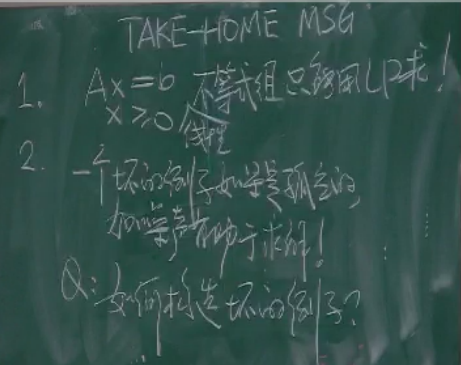 TAKE-HOME MSG
1. Ax=b 不等式组只能用LP求!
x≥0 线性
2. 一个坏的例子如果是孤立的,
加噪声有助于求解!
Q: 如何构造坏的例子?